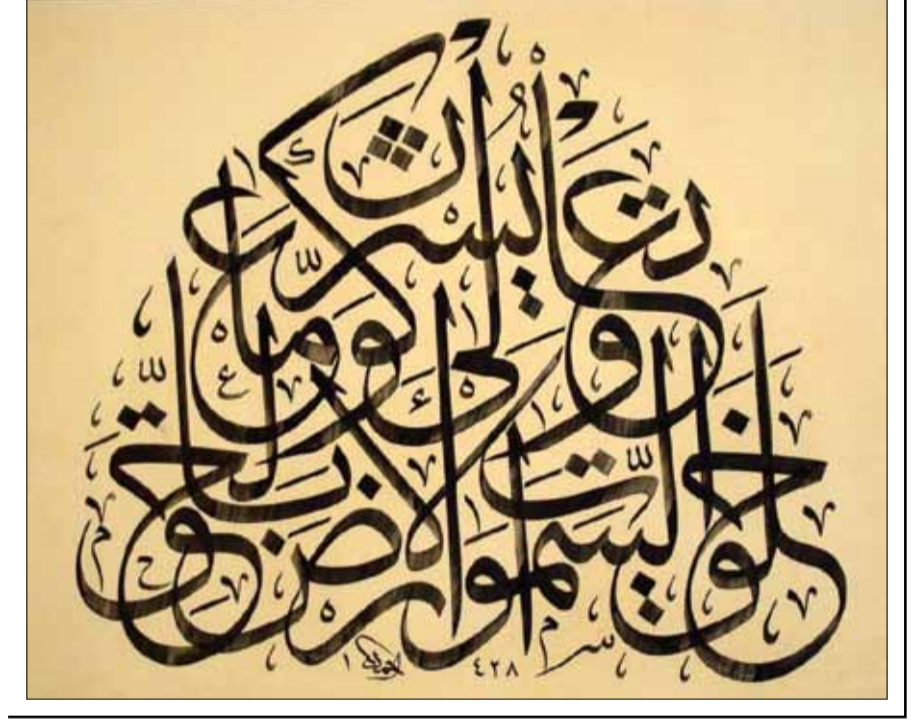 خلق السموات والأرض بالحق
تعالى عما يشركون
١٤٢٨